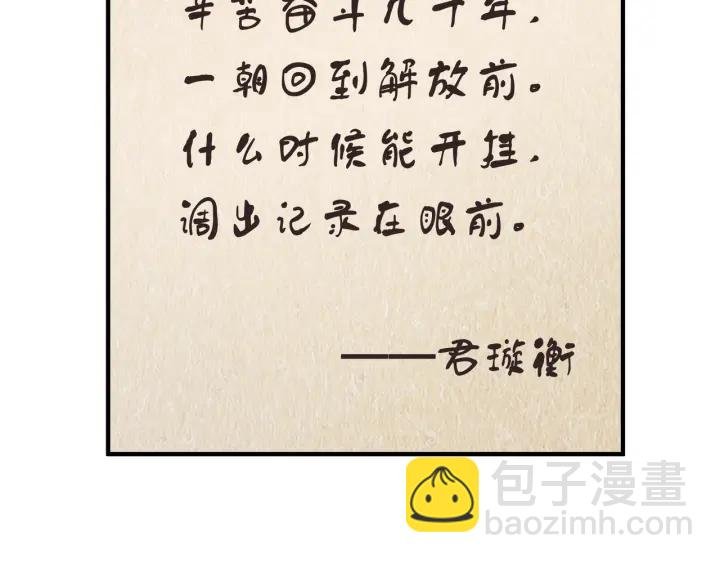 辛苦奋斗几十年，
一朝回到解放前。
什么时候能开挂，
调出记录在眼前。
——君璇衡
包子漫畫
baozimh.com